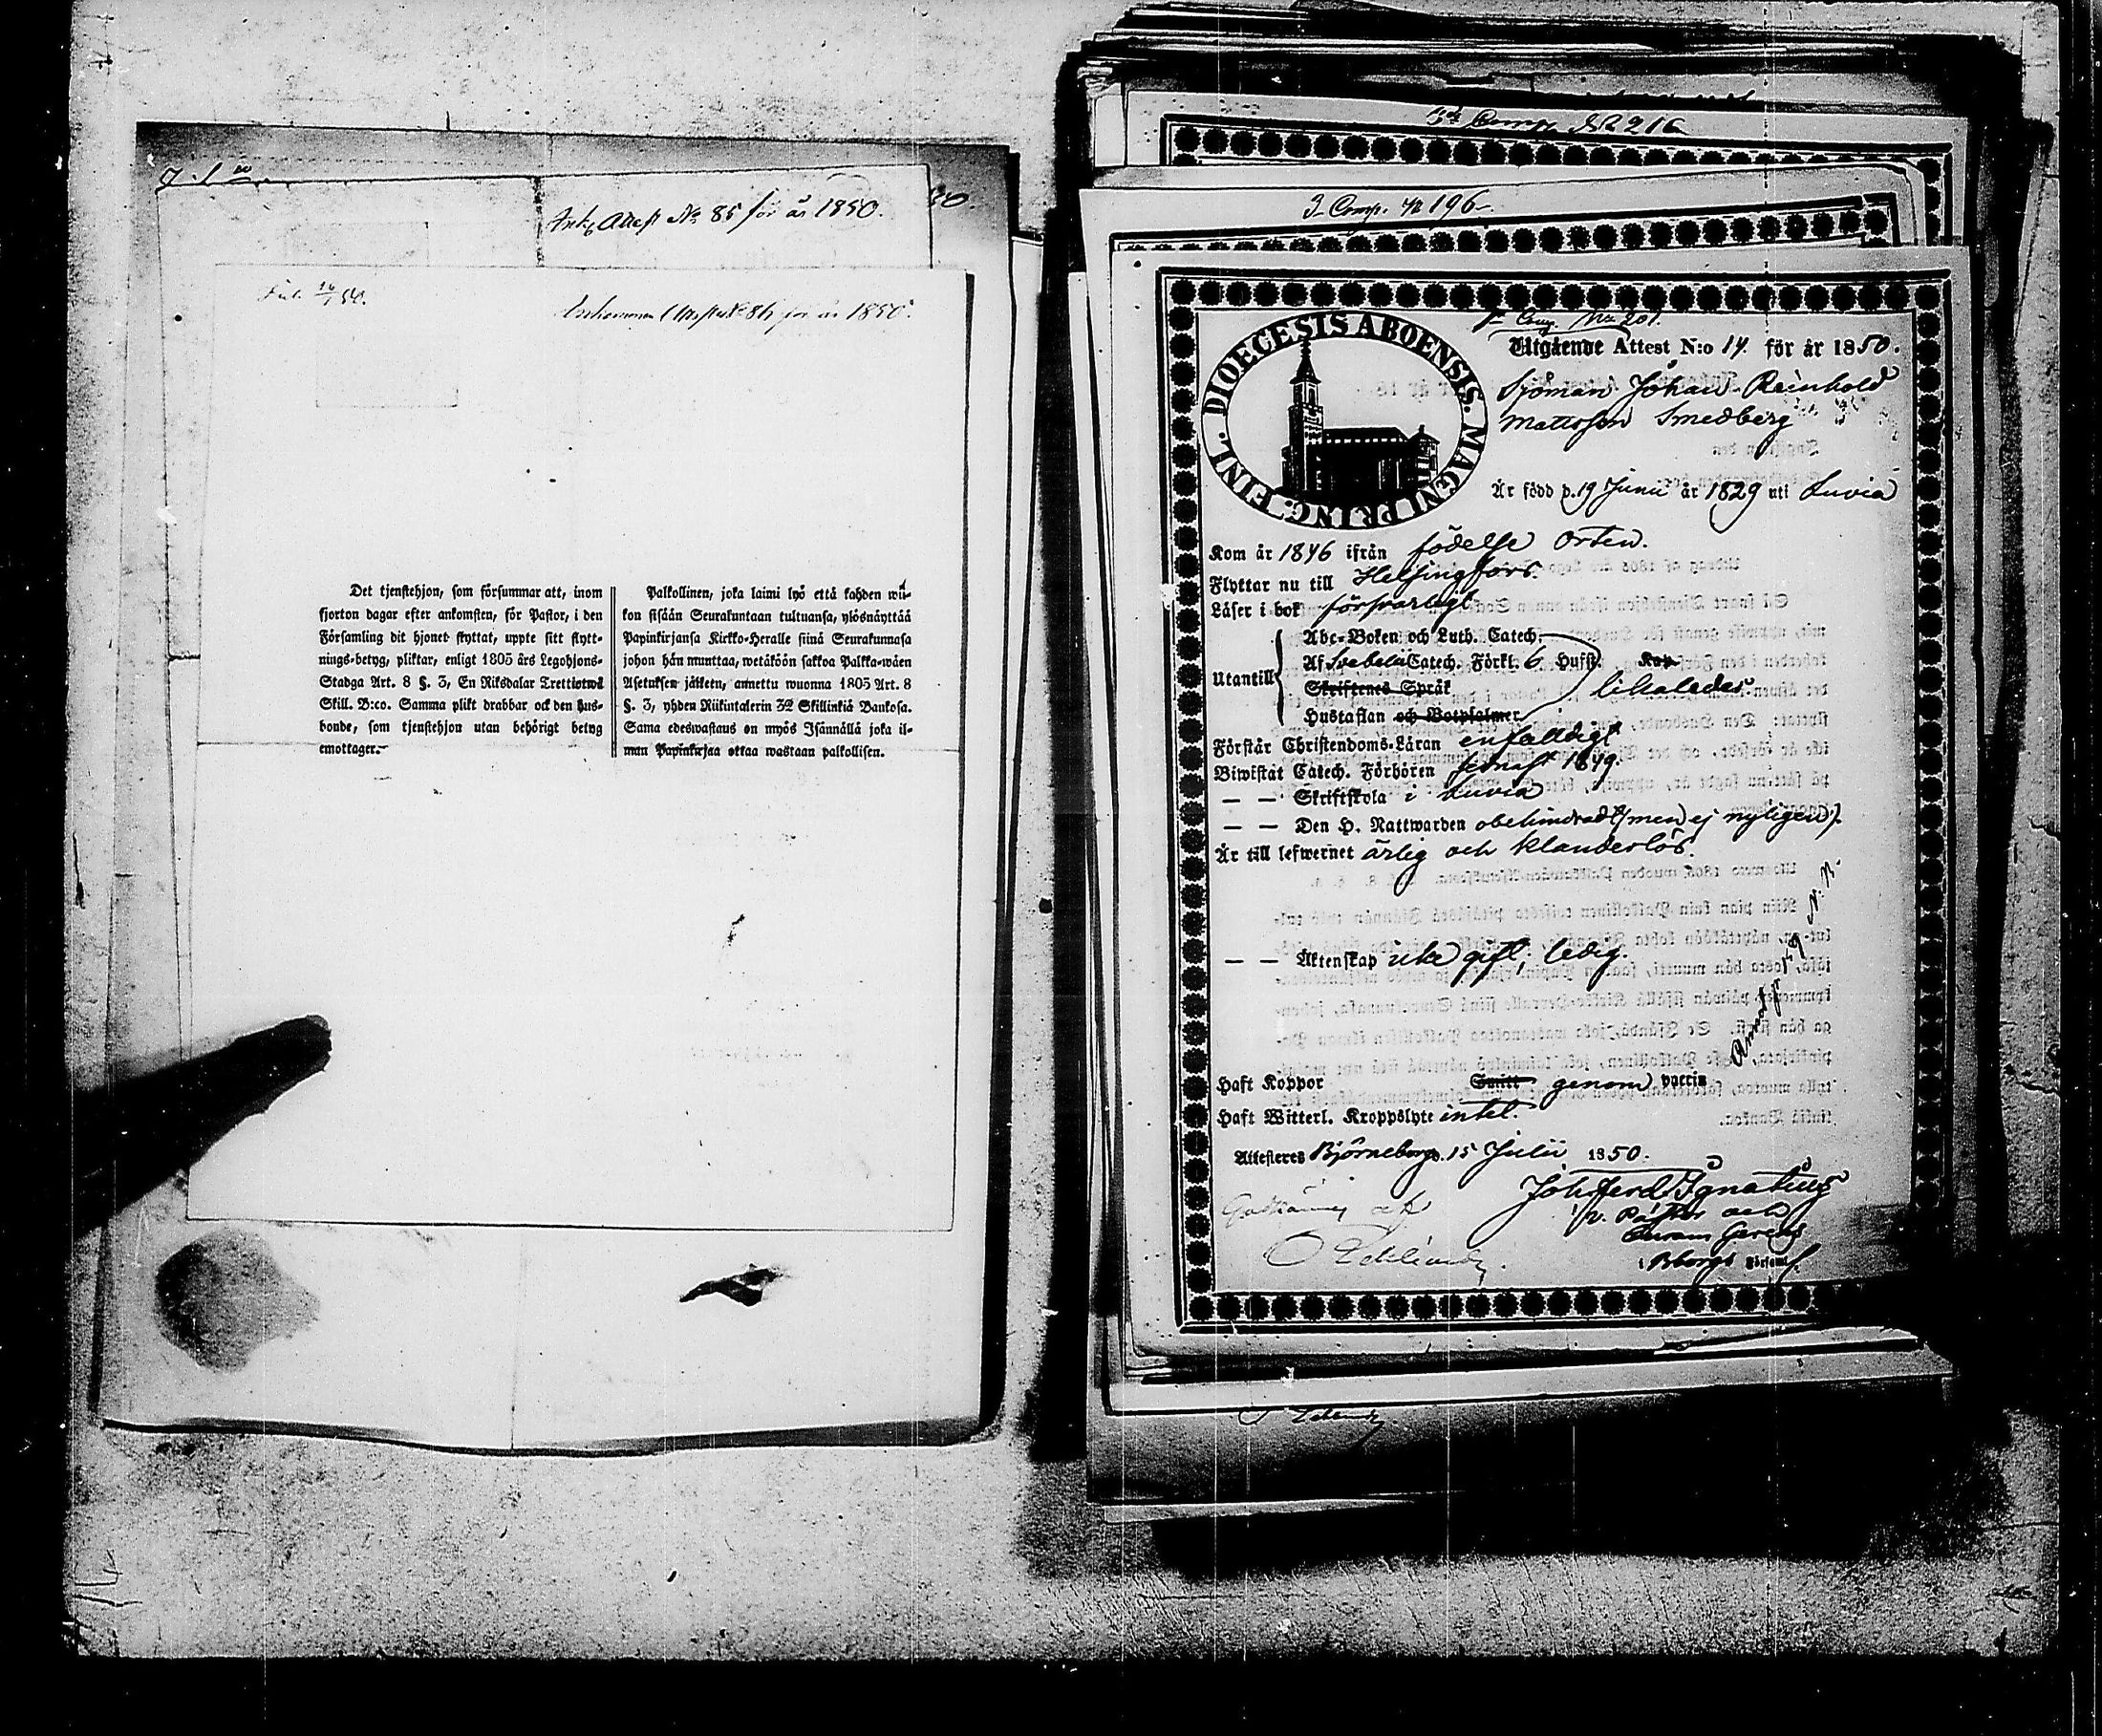 Ank. Attest No 85 för år 1850.
Attest No 86 för år 1850.
Det tjenstehjon, som försummar att, inom
fjorton dagar efter ankomsten, för Pastor, i den
Församling dit hjonet flyttat, uppte sitt flytt-
nings-betyg, pliktar, enligt 1805 års Legohjons-
Stadga Art. 8 §. 3, En Riksdalar Trettiotwå
Skill. B:co. Samma plikt drabbar ock den hus-
bonde, som tjenstehjon utan behörigt betyg
emottager.
Palkollinen, joka laimi lyö että kahden wii-
kon sisään Seurakuntaan tultuansa, ylösnäyttää
Papinkirjansa Kirkko-Heralle siinä Seurakunnasa
johon hän muuttaa, wetäköön sakkoa Palkka-wäen
Asetuksen jälken, annettu wuonna 1805 Art. 8
§. 3, yhden Riikintalerin 32 Skillinkiä Bankosa.
Sama edeswastaus on myös Isännällä joka il-
man Papinkirjaa ottaa wastaan palkollisen.
3 Comp. No 216
3 Comp. No 196
Comp. No 201.
DIOECESIS ABOENSIS. MAGNI PRINC. FINL.
Utgående Attest N:o 14. för år 1850.
Sjöman Johan Reinhold
Mattsson Smedberg
Är född d. 19 Junii år 1829 uti Luvia
Kom år 1846 ifrån födelse orten.
Flyttar nu till Helsingfors.
Läser i bok försvarligt
Utantill
Abc-Boken och Luth. Catech.
Af Svebelii Catech. Förkl. 6 Hufst. Kap
Skriftenes Språk likaledes
Hustaflan och Botpsalmer
Förstår Christendoms-Läran enfaldigt
Biwistat Catech. Förhören senast 1849.
— — Skriftskola i Luvia
— — Den H. Nattwarden obehindradt (men ej nyligen).
Är till lefwernet ärlig och klanderlös.
N. B.
— — Äktenskap icke gift, ledig.
Haft Koppor Smitt genom vaccin
Haft Witterl. Kroppslyte intet.
Attesteras Björneborg d. 15 Julii 1850.
Joh. Ferd. Ignatius
v. Pastor och
i Bborgs Församl.